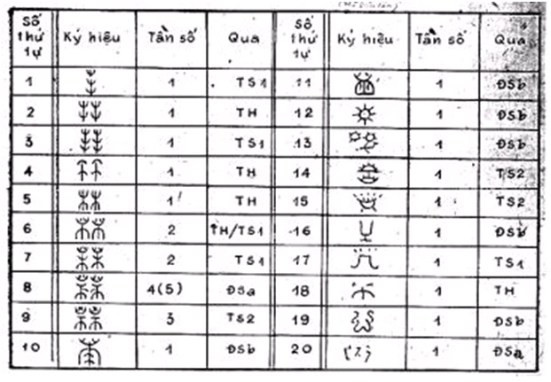 Số thứ tự Ký hiệu Tần số Qua Số thứ tự Ký hiệu Tần số Qua
1 1 TS1 11 1 ĐSb
2 1 TH 12 1 ĐSb
3 1 TS1 13 1 ĐSb
4 1 TH 14 1 TS2
5 1 TH 15 1 TS2
6 2 TH/TS1 16 1 ĐSb
7 2 TS1 17 1 TS1
8 4(5) ĐSa 18 1 TH
9 3 TS2 19 1 ĐSb
10 1 ĐSb 20 1 ĐSa